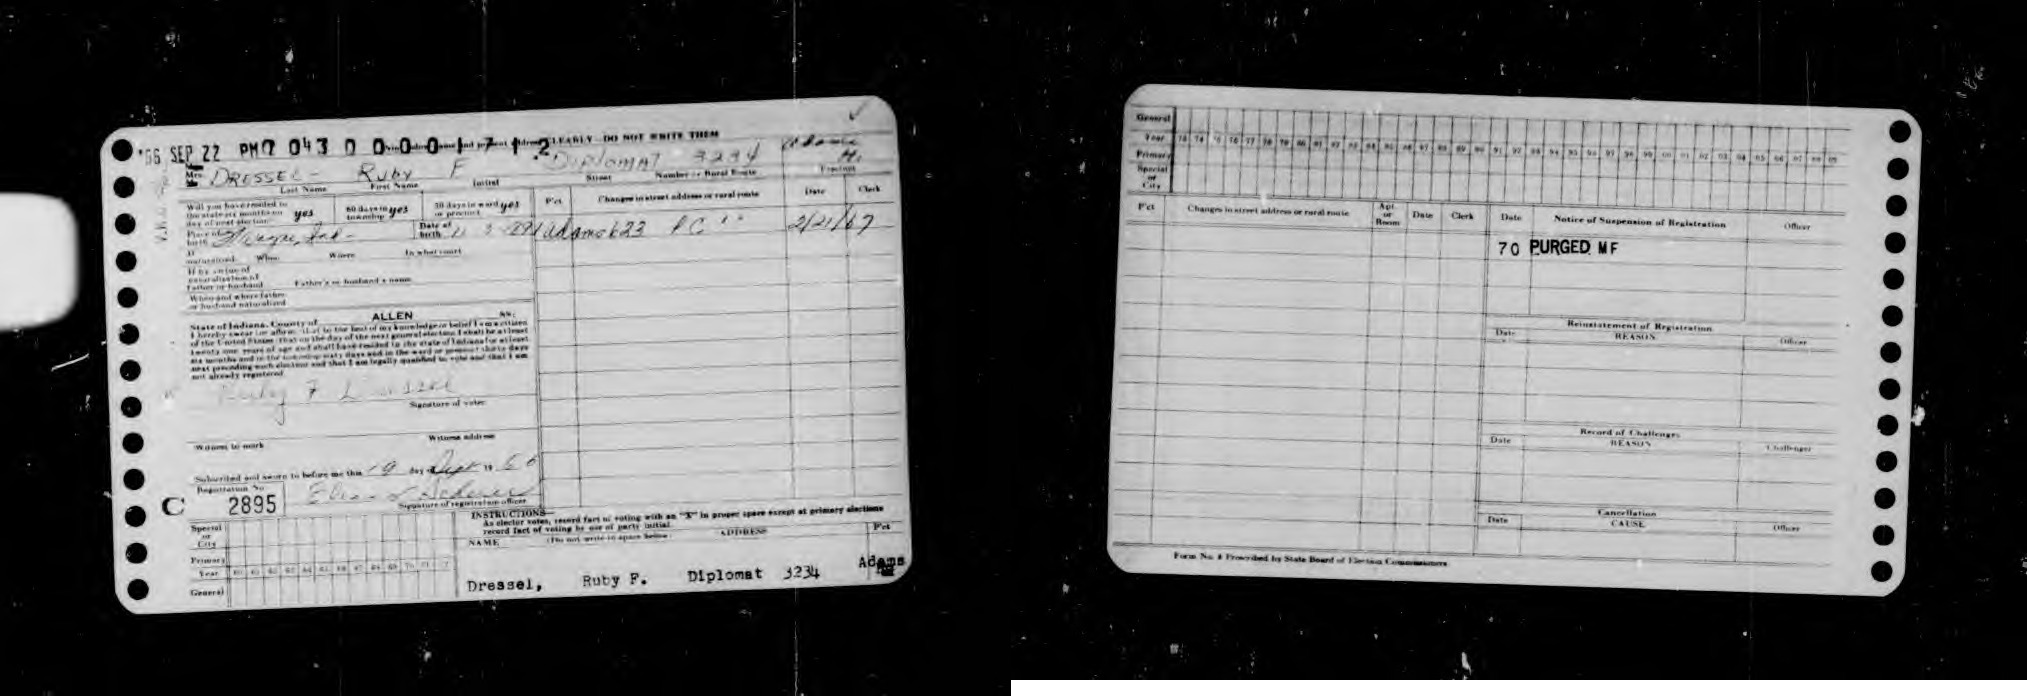 '66 SEP 22 PM 7 043 0 0 0 0 1 7 1 2 CLEARLY—DO NOT WRITE THEM
Mrs. DRESSEL - Ruby F DIPLOMAT 3234 Adams
Last Name First Name Initial Street Number or Rural Route Precinct
Will you have resided in the state six months on day of next election yes 60 days in township yes 30 days in ward or precinct yes
P'ct Changes in street address or rural route Date Clerk
Place of birth Ft Wayne, Ind - Date of birth
Adams 623 PC " 2/21/67
If naturalized When Where In what court
If by virtue of naturalization of Father or husband Father's or husband's name
When and where father or husband naturalized
State of Indiana, County of ALLEN SS:
I hereby swear (or affirm) that to the best of my knowledge or belief I am a citizen
of the United States; that on the day of the next general election I shall be at least
twenty one years of age and shall have resided in the state of Indiana for at least
six months and in the township sixty days and in the ward or precinct thirty days
next preceding such election and that I am legally qualified to vote and that I am
not already registered
Ruby F Dressel
Signature of voter
Witness to mark Witness address
Subscribed and sworn to before me this 19 day of Sept 19 66
Registration No.
C 2895
Signature of registration officer
INSTRUCTIONS—
As elector votes, record fact of voting with an "X" in proper space except at primary elections
record fact of voting by use of party initial.
NAME (Do not write in space below) ADDRESS P'ct
Special or City
Primary
Year 60 61 62 63 64 65 66 67 68 69 70 71 72
General
Dressel, Ruby F. Diplomat 3234 Adams
General
Year 73 74 75 76 77 78 79 80 81 82 83 84 85 86 87 88 89 90 91 92 93 94 95 96 97 98 99 00 01 02 03 04 05 06 07 08 09
Primary
Special or City
P'ct Changes in street address or rural route Apt. or Room Date Clerk Date Notice of Suspension of Registration Officer
70 PURGED MF
Reinstatement of Registration
Date REASON Officer
Record of Challenges
Date REASON Challenger
Cancellation
Date CAUSE Officer
Form No. 4 Prescribed by State Board of Election Commissioners